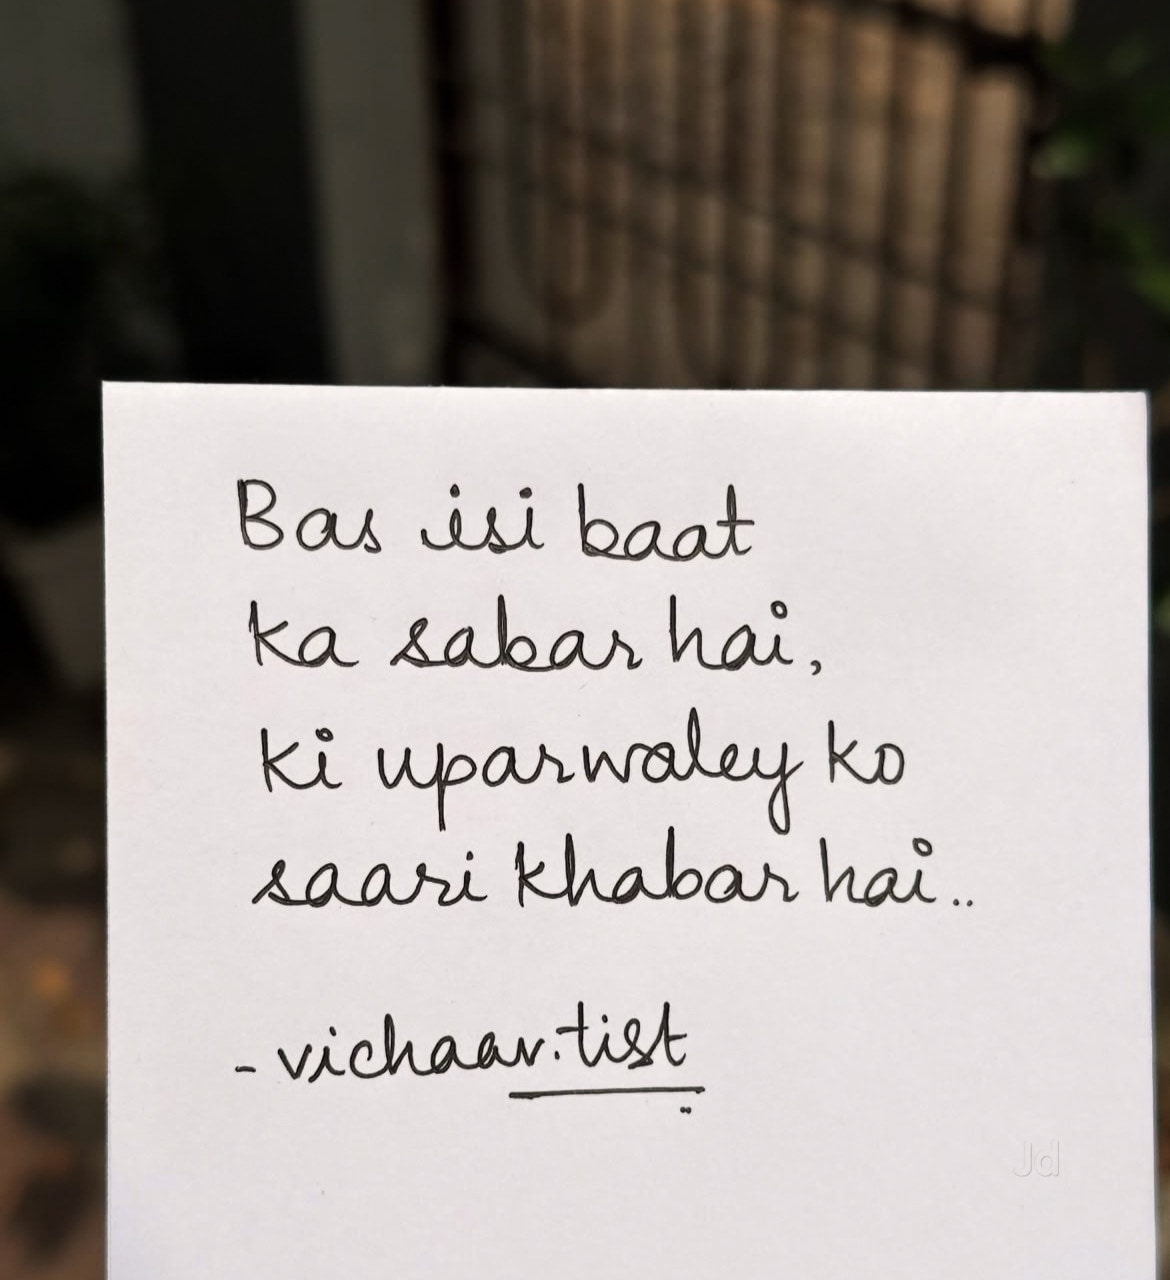 Bas isi baat
ka sabar hai,
ki uparwaley ko
saari khabar hai..
- vichaar.tist
Jd